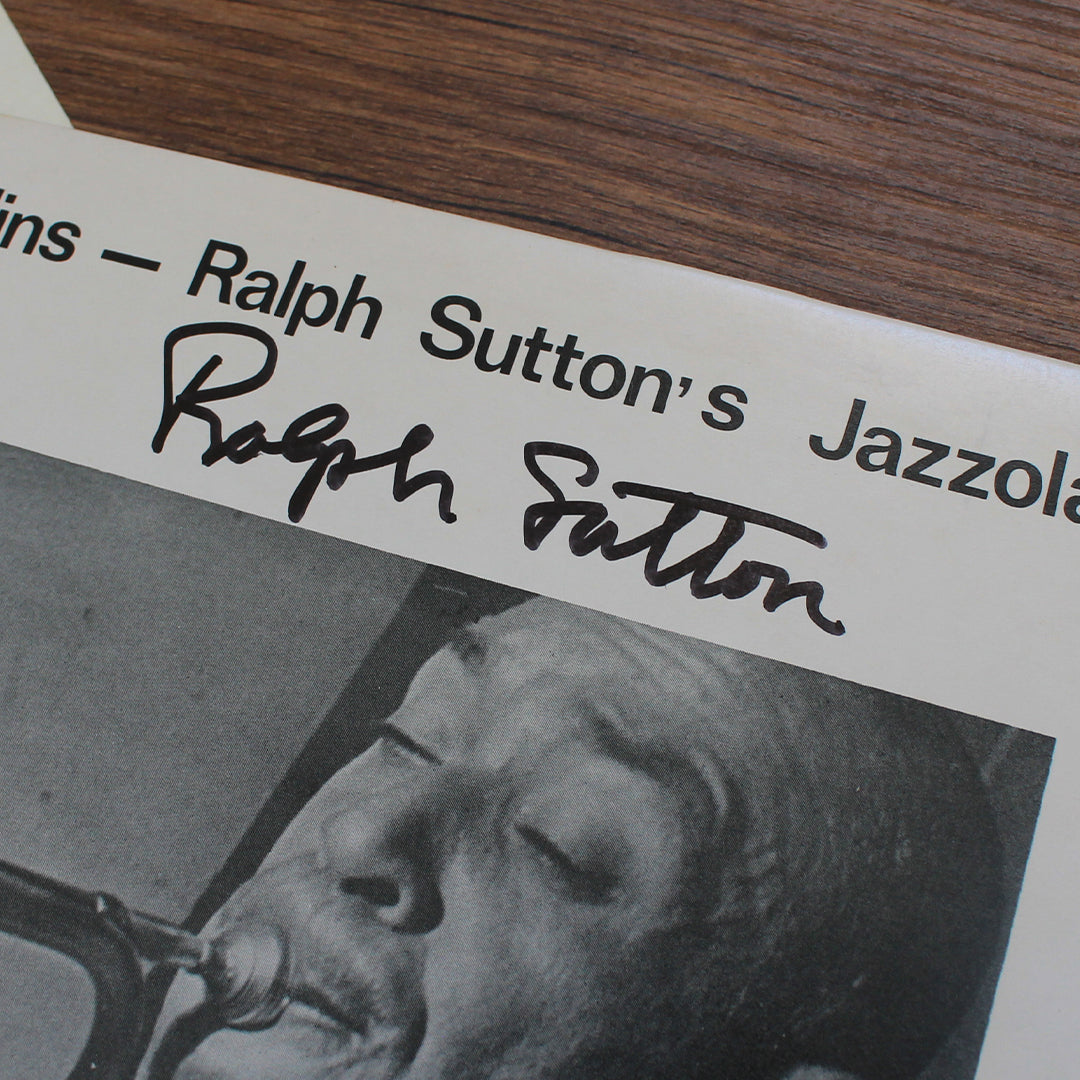 ins – Ralph Sutton's Jazzola
Ralph Sutton